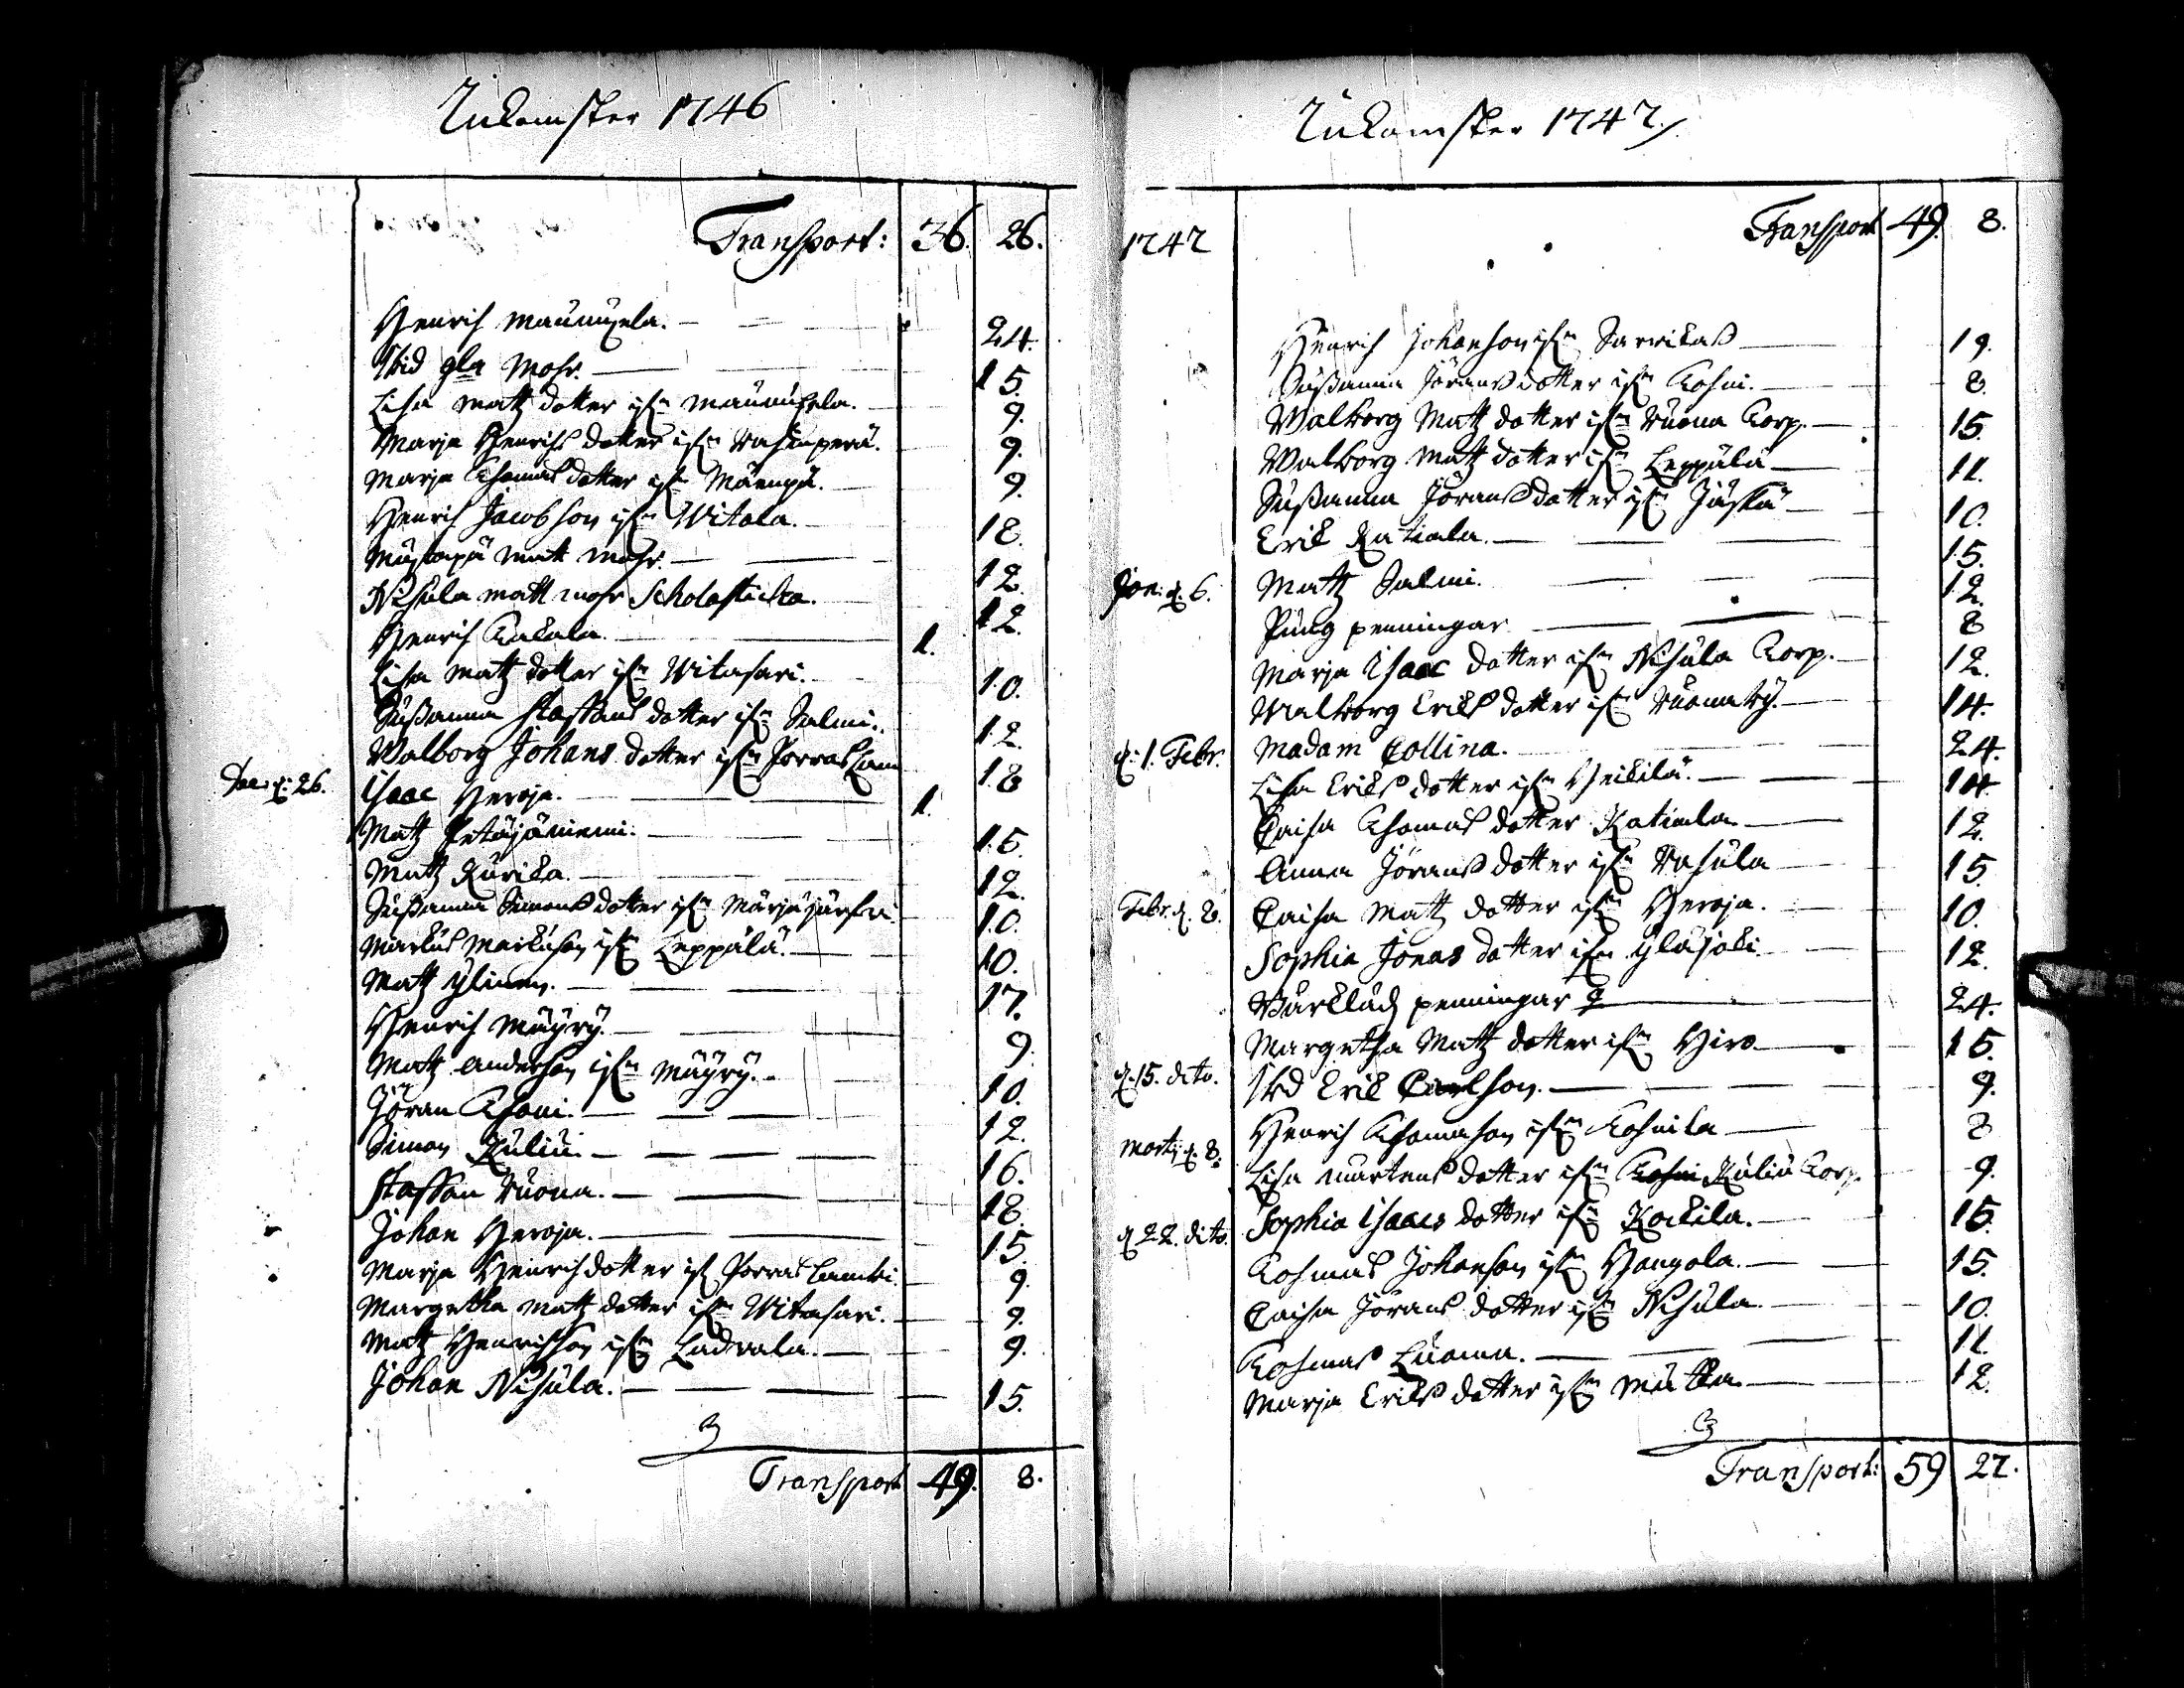 Inkomster 1746
Transport: 36. 26.
Henrich Maunuxela. 24.
Skld gla Mohr. 15.
Lisa Matz dotter ifrn Maunuxela. 9.
Marja Henrichs dotter ifrn Rasinperä. 9.
Marja Thomas dotter ifrn Mäenpä. 9.
Henrich Jacobson ifrn Witala. 18.
Mäkinpä Matt mohr. 12.
Nisula matt mohr Scholasticka. 12.
Henrich Kakala. 1.
Lisa Matz dotter ifrn Witasari. 10.
Susanna Staffans dotter ifrn Salmi. 12.
Walborg Johans dotter ifrn Porraslam 18
Dec. d: 26. Isaac Heroja. 1.
Matz Petäjäniemi. 15.
Matz Kurika. 12.
Susanna Simons dotter ifrn Märjäjärfwi 10.
Markus Markuson ifrn Leppälä. 10.
Matz Ylinen. 17.
Henrich Mäyry. 9.
Matz Anderson ifrn Mäyry. 10.
Jöran Thoni. 12.
Simon Kuliu. 16.
Staffan Ruona. 18.
Johan Heroja. 15.
Marja Henrichdotter if Porraslambi 9.
Margetha Matz dotter ifrn Witasari. 9.
Matz Henrichson ifrn Ladvala. 9.
Johan Nisula. 15.
Transport 49. 8.
Inkomster 1747.
1747 Transport 49. 8.
Henrich Johanson ifrn Sarvikas 19.
Susanna Jörans dotter ifrn Kohni. 8.
Walborg Matz dotter ifrn Ruona Torp. 15.
Walborg Matz dotter ifrn Leppälä 11.
Susanna Jörans dotter ifrn Jäskä 10.
Erik Katiala. 15.
Jan: d. 6. Matz Salmi. 12.
Pung penningar 8
Marja Isaac dotter ifrn Nisula Torp. 12.
Walborg Eriks dotter ifrn Ruonaky. 14.
d: 1. Febr. Madam Collina. 24.
Lisa Eriks dotter ifrn Heikilä. 14.
Caisa Thomas dotter Katiala 12.
Anna Jörans dotter ifrn Rasula 15.
Febr. d. 2. Caisa Matz dotter ifrn Heroja. 10.
Sophia Jonas dotter ifrn Yläjoki. 12.
Bårkläds penningar 24.
Margetha Matz dotter ifrn Hiro 15.
d. 15. dito. Skld Erik Carlson. 9.
Henrich Thomason ifrn Kohnila 8
Martij d. 8. Lisa Mårtens dotter ifrn Kuliu Torp. 9.
d 22. dito. Sophia Isaacs dotter ifrn Kockila. 15.
Thomas Johanson ifrn Hangola. 15.
Caisa Jörans dotter ifrn Nisula. 10.
Thomas Luoma. 11.
Marja Eriks dotter ifrn Mutka. 12.
Transport: 59 27.